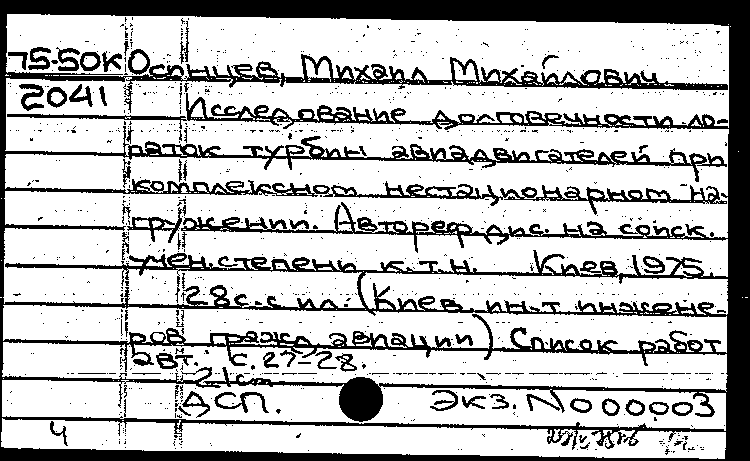 75-50К Осинцев, Михаил Михайлович.
2041 Исследование долговечности ло-
паток турбин авиадвигателей при
комплексном нестационарном на-
гружении. Автореф. дис. на соиск.
учен. степени к.т.н. Киев, 1975.
28с. с ил. (Киев. ин-т инжене-
ров гражд. авиации) Список работ
авт. с. 27-28.
21cm
ДСП. Экз. N000003
ч